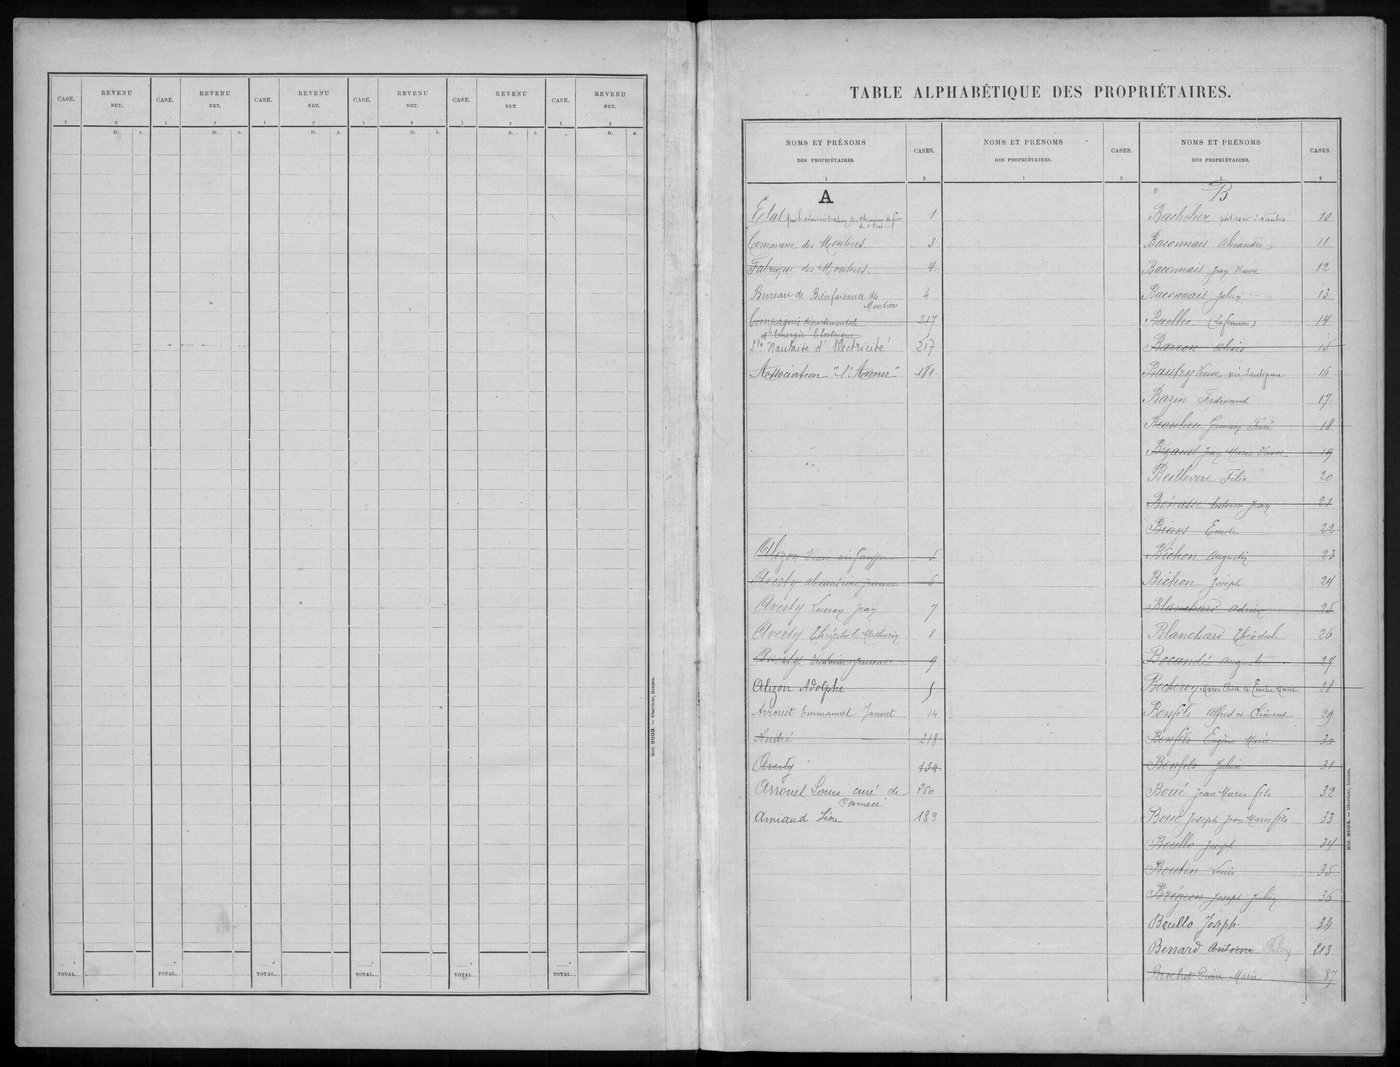 CASE. REVENU NET. CASE. REVENU NET. CASE. REVENU NET. CASE. REVENU NET. CASE. REVENU NET. CASE. REVENU NET.
1 2 1 2 1 2 1 2 1 2 1 2
fr. c. fr. c. fr. c. fr. c. fr. c. fr. c.
TOTAL.. TOTAL.. TOTAL.. TOTAL.. TOTAL.. TOTAL..
Mod. 2003. — Oberthur, Rennes.
TABLE ALPHABÉTIQUE DES PROPRIÉTAIRES.
NOMS ET PRÉNOMS DES PROPRIÉTAIRES. CASES. NOMS ET PRÉNOMS DES PROPRIÉTAIRES. CASES. NOMS ET PRÉNOMS DES PROPRIÉTAIRES. CASES.
1 2 1 2 1 2
A
Etat 1
Commune des Moutiers 3
Fabrique des Moutiers. 4
Bureau de Bienfaisance de Moutiers 4
Compagnie départementale d'Energie Electrique 217
Sté Nantaise d'Electricité 217
Association "l'Avenir" 181
Alizon Veuve née 5
Averty Alexandrine Jeanne 6
Averty Lucien Jean 7
Averty Théophile Mathurin 8
Averty Victoire Jeanne 9
Alizon Adolphe 5
Arrouet Emmanuel Jaunet 14
André 218
Averty 134
Arrouet Louis curé de 200
Amiaud Léon 189
B
Bachelier à Nantes 10
Baconnais Alexandre 11
Baconnais Jean Veuve 12
Baconnais Julien 13
14
Barzon Alexis 15
Baudry Veuve née 16
Bazin Ferdinand 17
Germain 18
Bégaud Jean Marie Veuve 19
Beillevert Félix 20
Bénasse Jean 21
Biays Emile 22
Bichon Augustin 23
Bichon Joseph 24
Blanchard Adrien 25
Blanchard Théodule 26
Bocandé Auguste 27
Marie et Emilie Marie 28
Bonfils Alfred et Clément 29
Bonfils Eugène Marie 30
Bonfils Julien 31
Boué Jean Marie fils 32
Boué Joseph Jean Marie fils 33
Boullo Joseph 34
Boutin Louis 35
Brégeon Joseph Julien 36
Boullo Joseph 34
Benard Antoine 213
Brochet Pierre Marie 87
Mod. 2004. — Oberthur, Rennes.